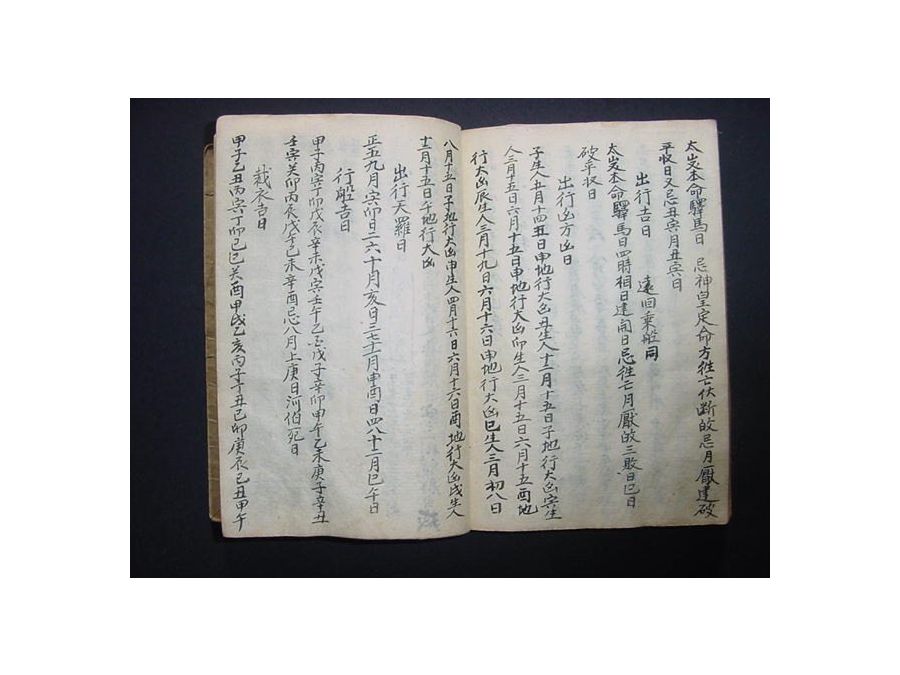 太歲本命驛馬日 忌神皇定命方徃亡伏断故忌月厭建破
平收日又忌丑寅月丑寅日
出行吉日 遠回乗船同
太歲本命驛馬日四時相日建開日忌徃亡月厭故三敗日巳日
破平收日
出行凶方凶日
子生人五月十四丑日申地行大凶丑生人十二月十五日子地行大凶寅生
人三月十五日六月十五日申地行大凶卯生人三月十五日六月十五酉地
行大凶辰生人三月十九日六月十六日申地行大凶巳生人三月初八日
八月十五日子地行大凶申生人四月十六日六月十六日酉地行大凶戌生人
十二月十五日午地行大凶
出行天羅日
正五九月寅卯日二六十月亥日三七十一月申酉日四八十二月巳午日
行船吉日
甲子丙寅丁卯戊辰辛未戊寅壬午乙酉戊子辛卯甲午乙未庚子辛丑
壬寅癸卯丙辰戊午己未辛酉忌八月上庚日河伯死日
裁衣吉日
甲子乙丑丙寅丁卯己巳癸酉甲戌乙亥丙子丁丑己卯庚辰己丑甲午